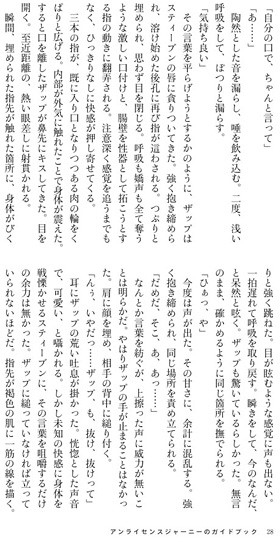 「自分の口で、ちゃんと言って」
「あ……」
陶然とした音を漏らし、唾を飲み込む。二度、浅い
呼吸をして、ぽつりと漏らす。
「気持ち良い」
その言葉を平らげようとするかのように、ザップは
スティーブンの唇に食りついてきた。強く抱き締めら
れ、溶け始めた後孔に再び指が這わされる。つぷりと
埋められ、思わず目を閉じる。呼吸も嬌声も全て奪う
ような激しい口付けと、腸壁を性器として拓こうとす
る指の動きに翻弄される。注意深く感覚を追うまでも
なく、ひっきりなしに快感が押し寄せてくる。
三本の指が、既に入り口となりつつある肉の輪をく
ぱりと広げる。内部が外気に触れたことで身体が震えた。
すると口を離したザップが鼻先にキスしてきた。目を
開く。至近距離の、熱い眼差しに射貫かれる。
瞬間、埋められた指先が触れた箇所に、身体がびく
りと強く跳ねた。目が眩むような感覚に声も出ない。
一拍遅れて呼吸を取り戻す。瞬きをして、今のなんだ、
と呆然と呟く。ザップも驚いているらしかった。無言
のまま、確かめるように同じ箇所を撫でられる。
「ひぁっ、や」
今度は声が出た。その甘さに、余計に混乱する。強
く抱き締められ、同じ場所を責め立てられる。
「だめだ、そこ、あ、あっ……」
なんとか言葉を紡ぐが、上擦った声に威力が無いこ
とは明らかだ。やはりザップの手が止まることはなかっ
た。肩に顔を埋め、相手の背中に縋り付く。
「んぅ、いやだっ……ザップ、も、抜け、抜けって」
耳にザップの荒い吐息が掛かった。恍惚とした声音
で、可愛い、と囁かれる。しかし未知の快感に身体を
戦慄かせるスティーブンに、その言葉を咀嚼するだけ
の余力は無かった。ザップに縋っていなければ立って
いられないほどだ。指先が褐色の肌に一筋の線を描く、
アンライセンスジャーニーのガイドブック 28